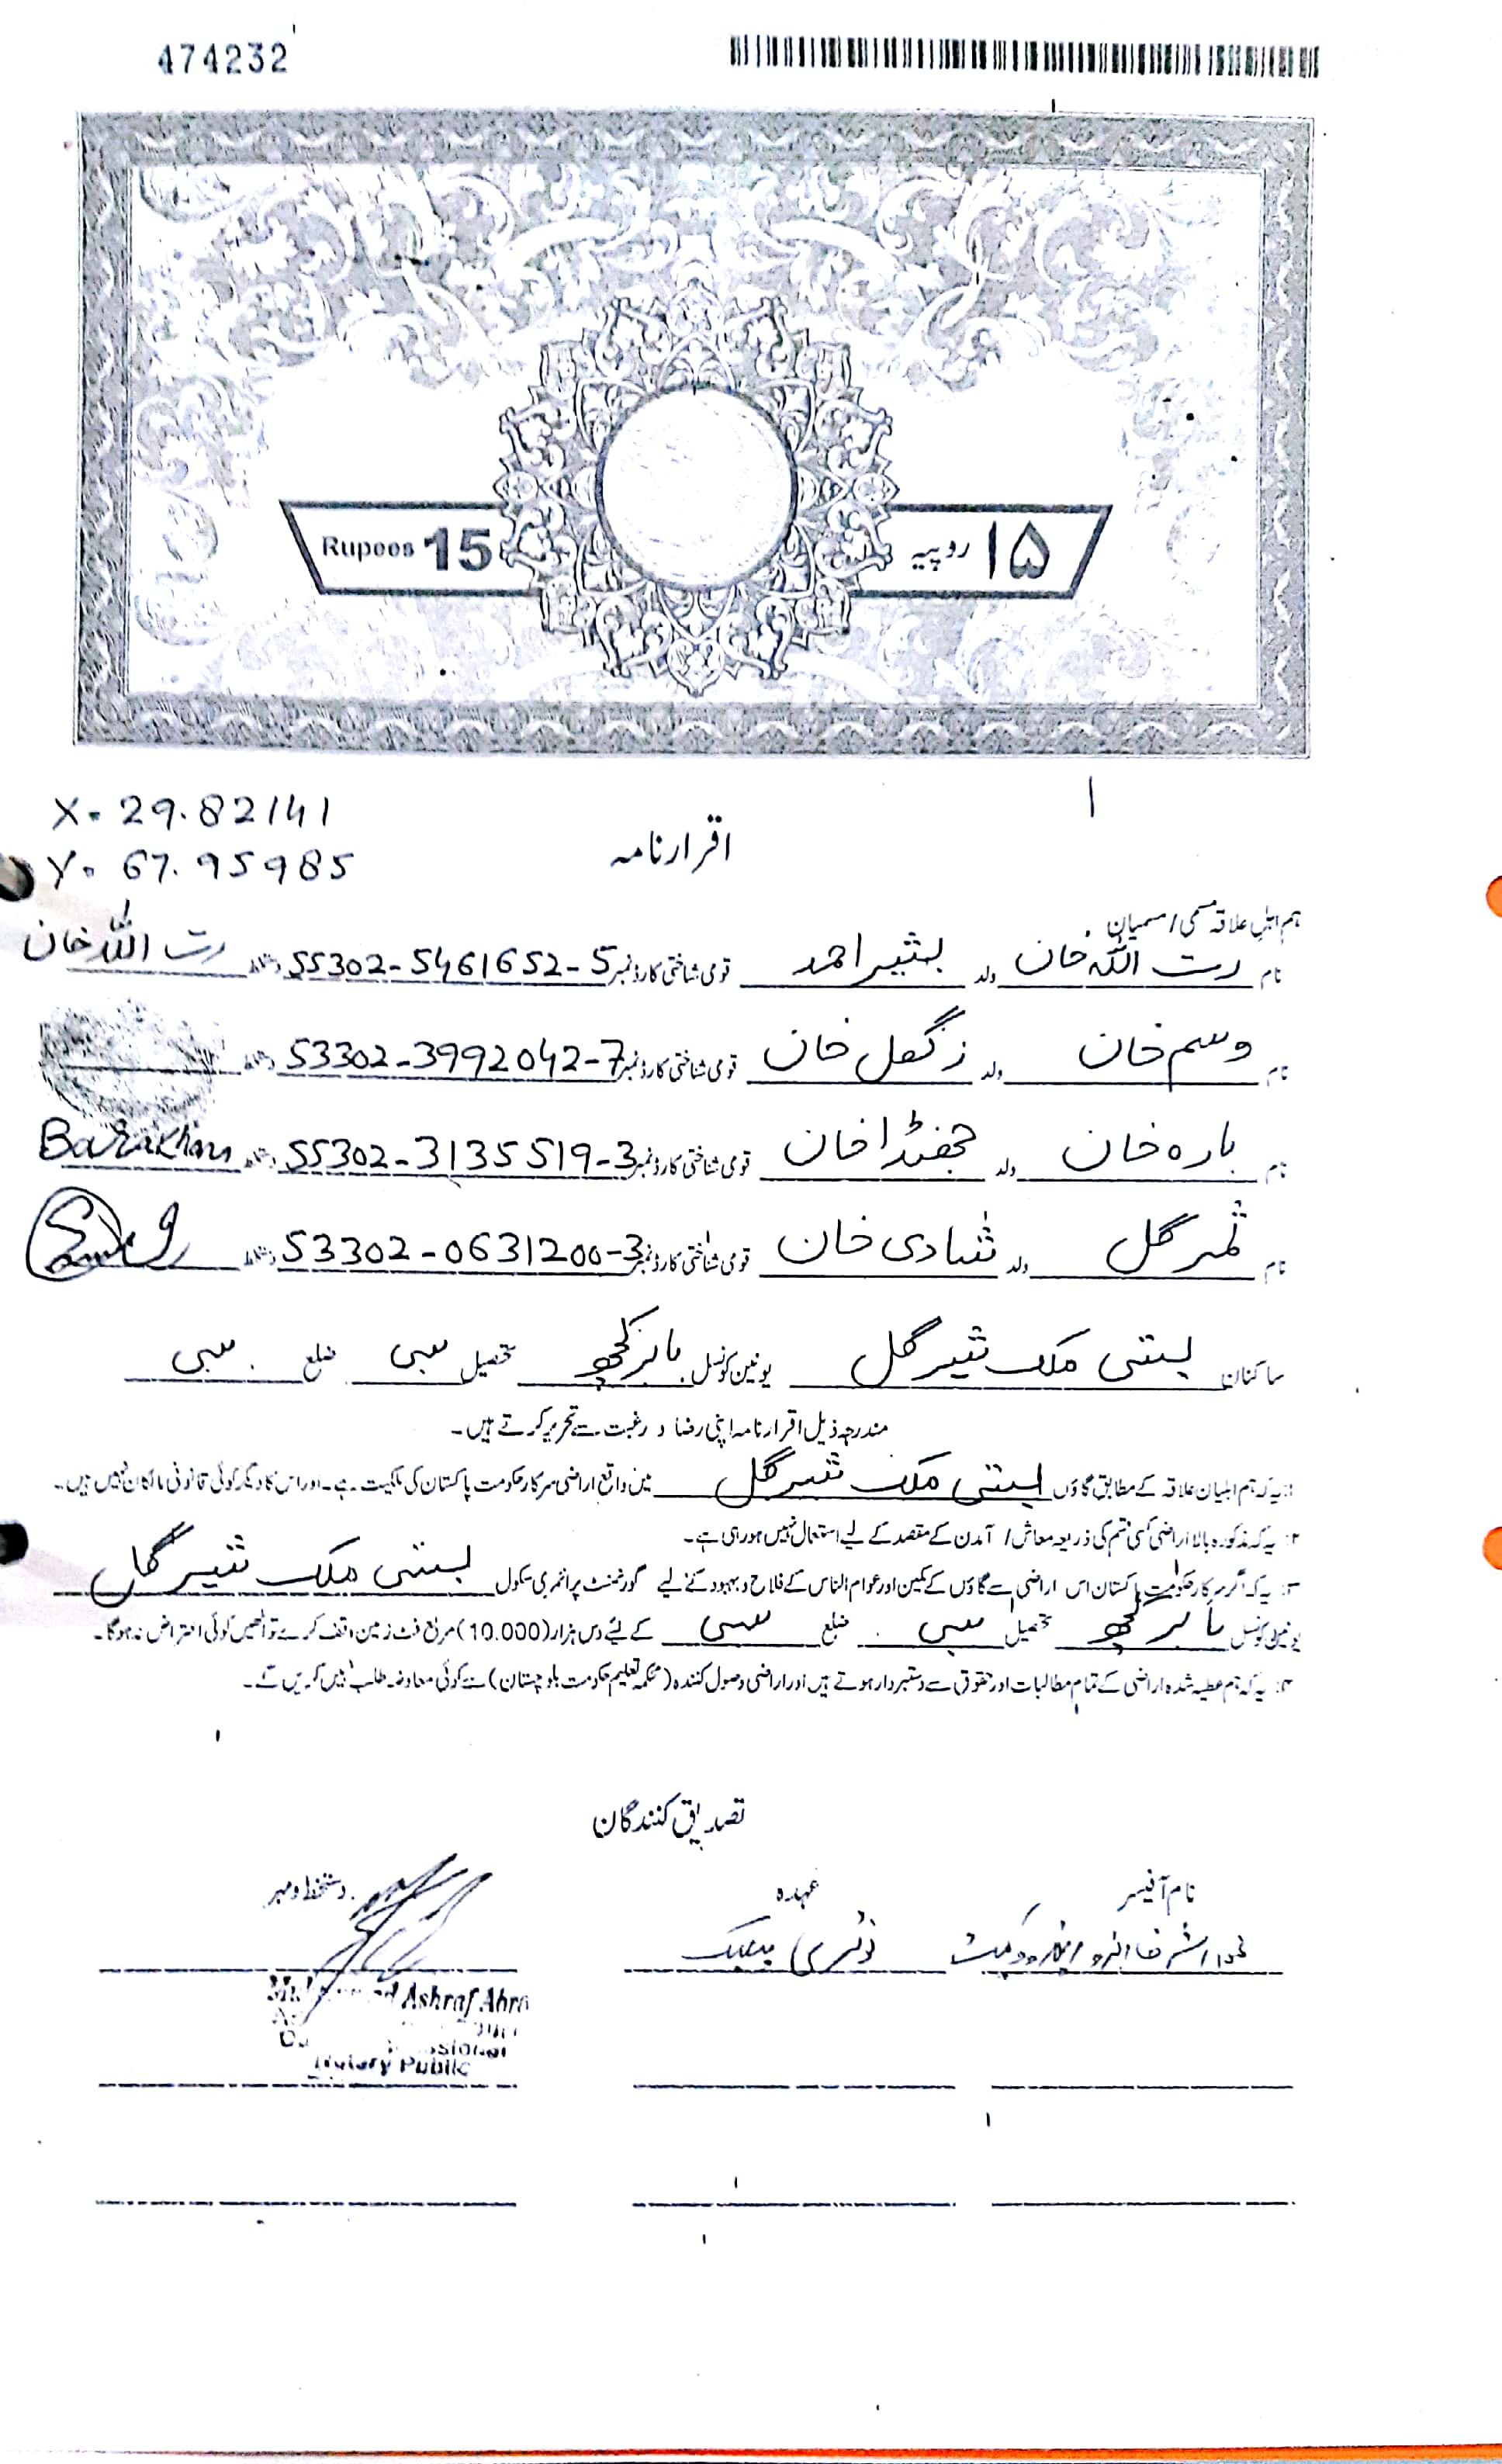 474232
Rupees 15
۱۵ روپیہ
X. 29.82141
Y. 67.95985
اقرارنامہ
ہم اہل علاقہ مسمی / مسمیان
نام رحمت اللہ خان ولد بشیر احمد قومی شناختی کارڈ نمبر 55302-5461652-5 دستخط رحمت اللہ خان
نام وسیم خان ولد زنگھل خان قومی شناختی کارڈ نمبر 53302-3992042-7 دستخط
نام بارہ خان ولد جھنڈا خان قومی شناختی کارڈ نمبر 55302-3135519-3 دستخط Barakhan
نام ثمر گل ولد شادی خان قومی شناختی کارڈ نمبر 53302-0631200-3 دستخط
ساکنان بستی ملک شیر گل یونین کونسل بابر کچھ تحصیل سبی ضلع سبی
مندرجہ ذیل اقرارنامہ اپنی رضا و رغبت سے تحریر کرتے ہیں۔
۱: یہ کہ ہم اہلیان علاقہ کے مطابق گاؤں بستی ملک شیر گل میں واقع اراضی سرکار حکومت پاکستان کی ملکیت ہے۔ اور اس کا دیگر کوئی قانونی مالکان نہیں ہیں۔
۲: یہ کہ مذکورہ بالا اراضی کسی قسم کی ذریعہ معاش / آمدن کے مقصد کے لیے استعمال نہیں ہو رہی ہے۔
۳: یہ کہ اگر سرکار حکومت پاکستان اس اراضی سے گاؤں کے مکین اور عوام الناس کے فلاح و بہبود کے لیے گورنمنٹ پرائمری سکول بستی ملک شیر گل
یونین کونسل بابر کچھ تحصیل سبی ضلع سبی کے لیئے دس ہزار (10.000) مربع فٹ زمین وقف کرے تو انھیں کوئی اعتراض نہ ہوگا۔
۴: یہ کہ ہم عطیہ شدہ اراضی کے تمام مطالبات اور حقوق سے دستبردار ہوتے ہیں اور اراضی وصول کنندہ (محکمہ تعلیم حکومت بلوچستان) سے کوئی معاوضہ طلب نہیں کریں گے۔
تصدیق کنندگان
نام آفیسر عہدہ دستخط و مہر
محمد اشرف ابڑو ایڈووکیٹ نوٹری پبلک
Ashraf Abro
Notary Public